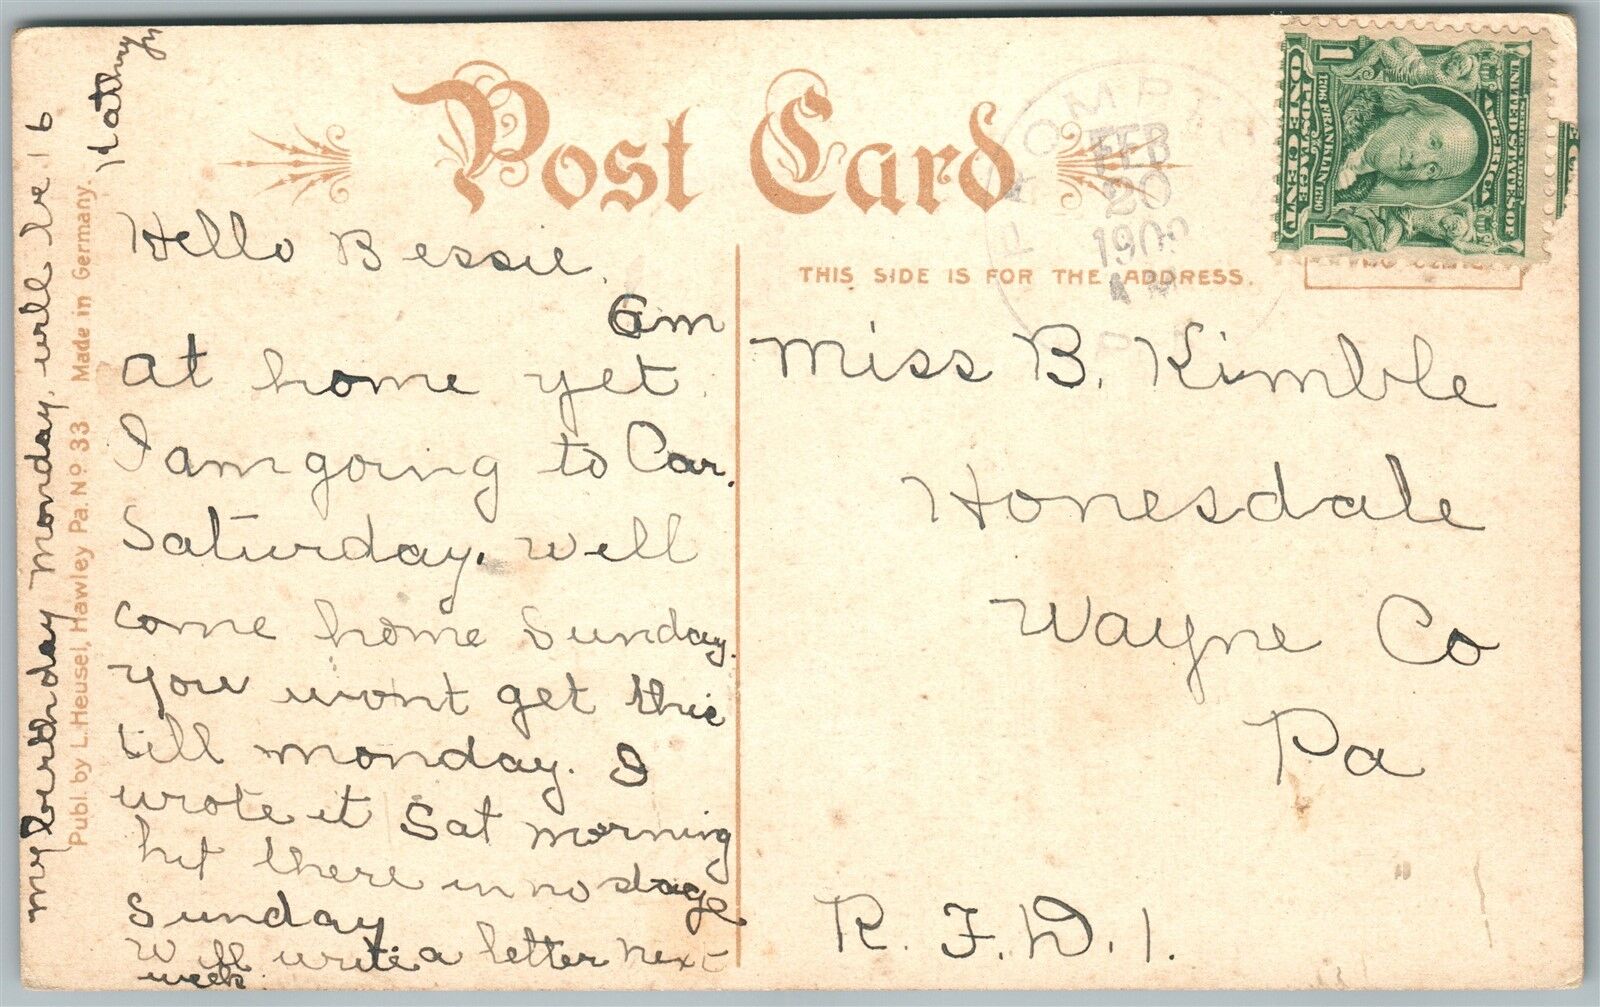 Post Card
THIS SIDE IS FOR THE ADDRESS.
PROMPTON
FEB
20
1909
AM
PA
UNITED STATES OF AMERICA
SERIES 1902
1706 FRANKLIN 1790
POSTAGE
1 ONE CENT 1
Hello Bessie.
am
at home yet.
I am going to Car.
Saturday. Well
come home Sunday.
You wont get this
till monday. I
wrote it Sat morning
but there in no stage
Sunday
Will write a letter next
week
my birthday monday. will be 16
Kathryn
Publ. by L. Heusel, Hawley Pa. No 33 Made in Germany.
Miss B. Kimble
Honesdale
Wayne Co
Pa
R. F. D. 1.